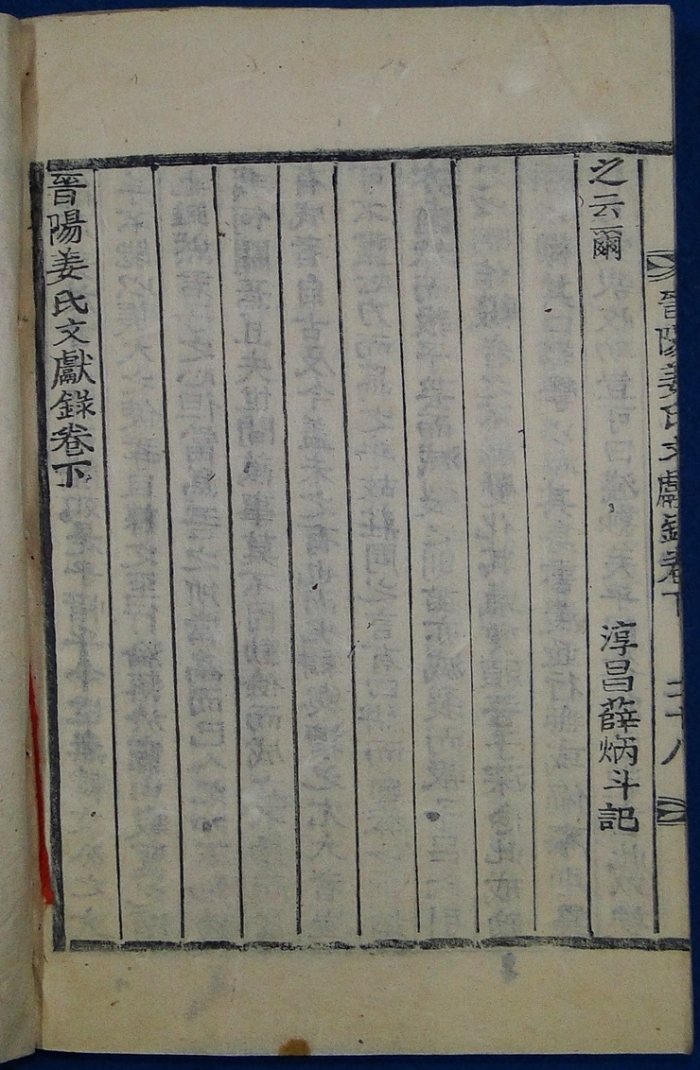 晉陽姜氏文獻錄卷下 二十八
之云爾
淳昌薛炳斗記
晉陽姜氏文獻錄卷下